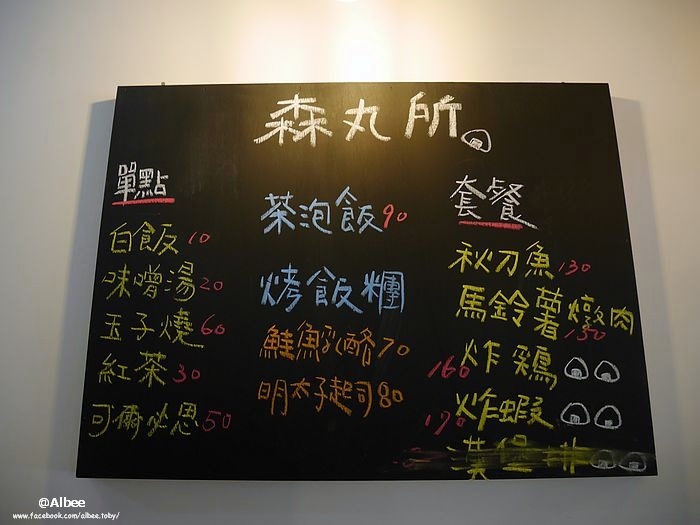 森丸所
單點
白飯 10
味噌湯 20
玉子燒 60
紅茶 30
可爾必思 50
茶泡飯 90
烤飯糰
鮭魚乳酪 70
明太子起司 80
套餐
秋刀魚 130
馬鈴薯燉肉 150
160 炸鶏
170 炸蝦
漢堡丼
@Albee
www.facebook.com/albee.toby/